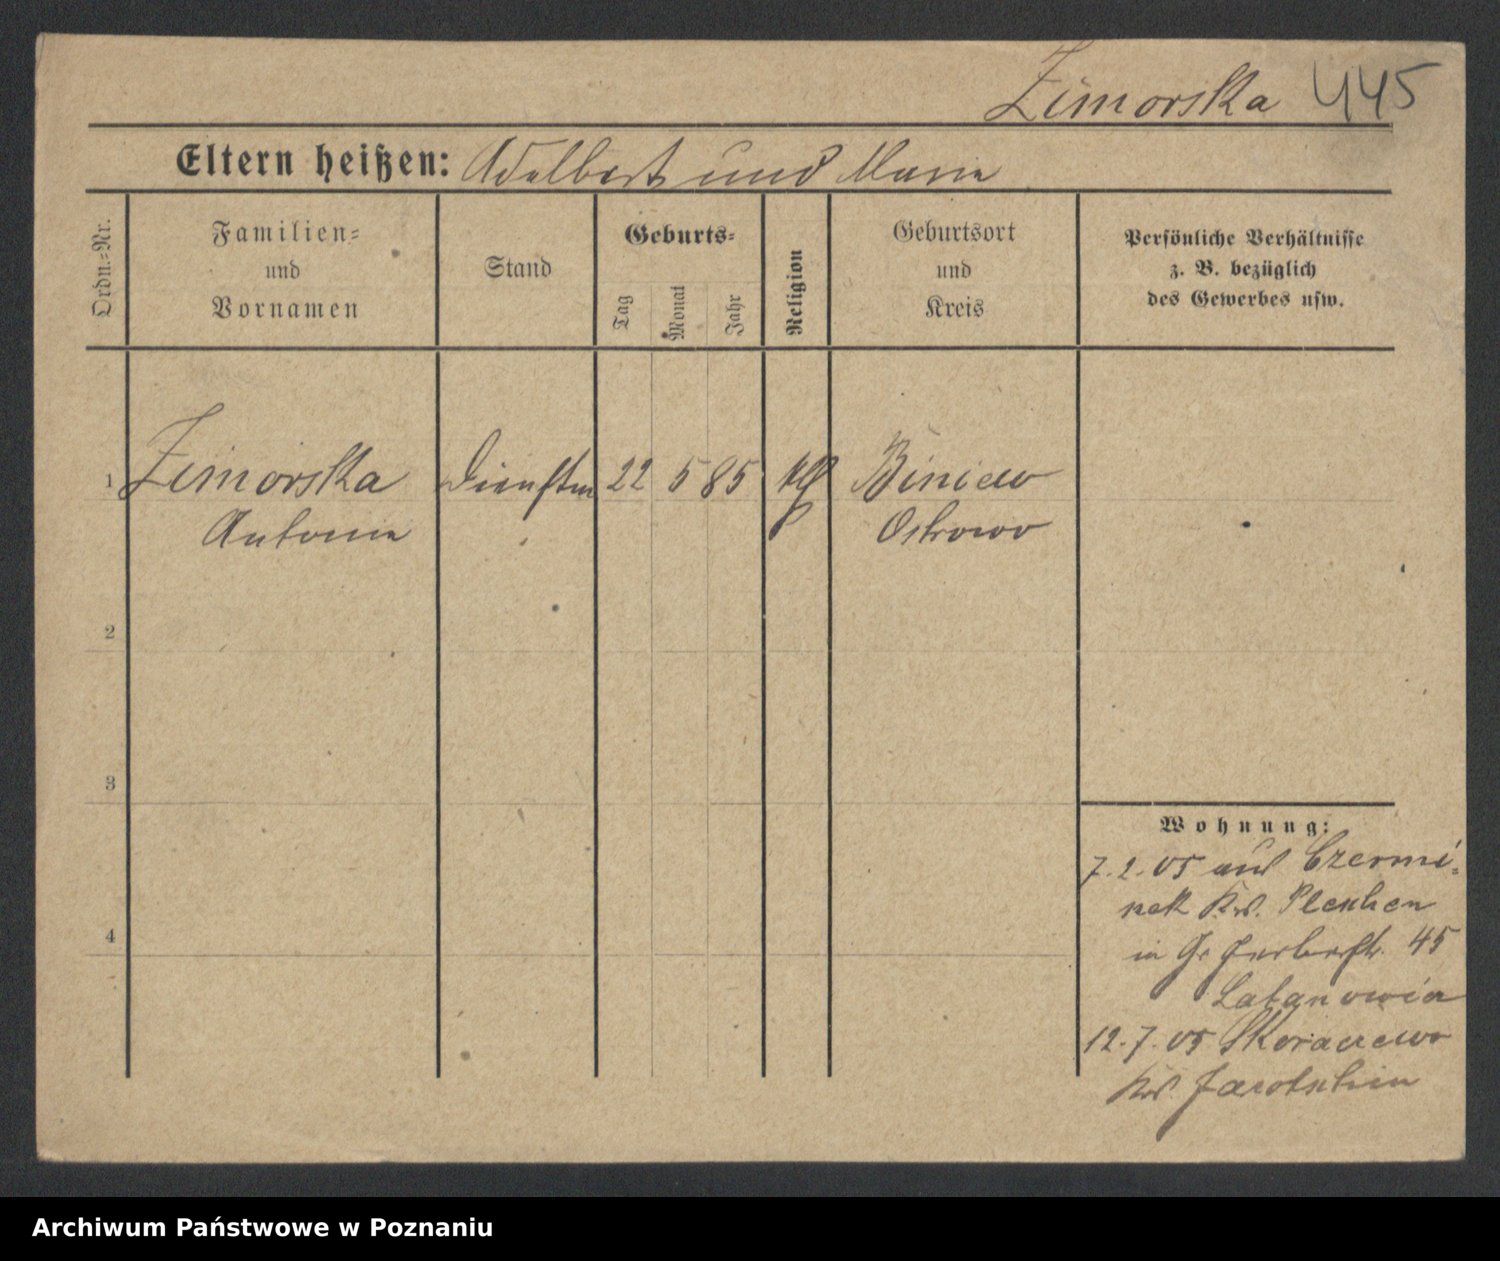 Zimorska 445
Eltern heißen: Adelbert und Marie
Ordn.-Nr.
Familien-
und
Vornamen
Stand
Geburts-
Tag
Monat
Jahr
Religion
Geburtsort
und
Kreis
Persönliche Verhältnisse
z. B. bezüglich
des Gewerbes usw.
1 Zimorska Dienstm 22 5 85 kth Biniew
Antonie Ostrowo
2
3
4
Wohnung:
7. 2. 05 aus Czermi-
nek Krs. Pleschen
in Gr Gerberstr. 45
Latanowicz
12. 7. 05 Skoraczewo
Krs. Jarotschin
Archiwum Państwowe w Poznaniu